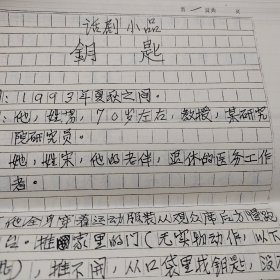 第一页共 页
话剧小品
钥匙
：1993年夏秋之间。
：他，姓常，70岁左右，教授，某研究
院研究员。
她，姓宋，他的老伴，退休的医务工作
者。
他全身穿着运动服装从观众席后方慢跑
台。推家里的门（无实物动作，以下
），推不开，从口袋里找钥匙，没